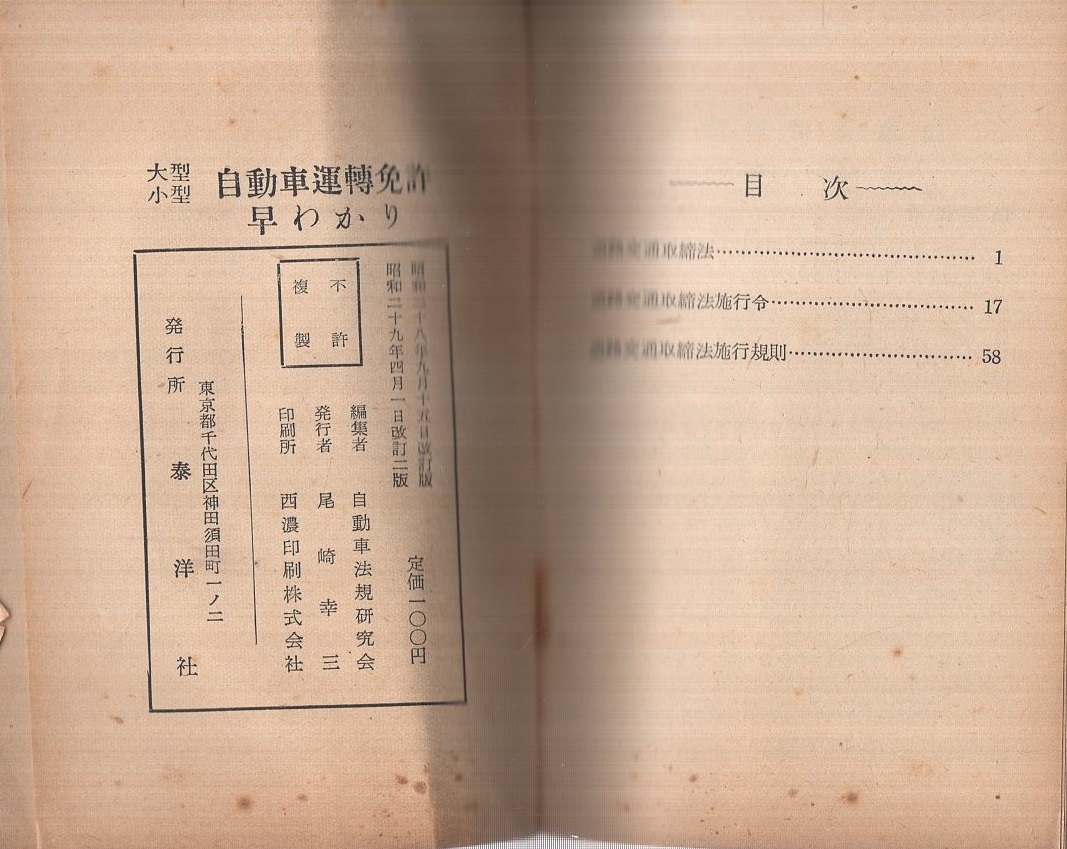 大型
小型
自動車運轉免許
早わかり
昭和二十八年九月十五日改訂版
昭和二十九年四月一日改訂二版
定価一〇〇円
不許
複製
編集者 自動車法規研究会
発行者 尾崎幸三
印刷所 西濃印刷株式会社
東京都千代田区神田須田町一ノ二
発行所 泰洋社
目次
道路交通取締法 1
道路交通取締法施行令 17
道路交通取締法施行規則 58